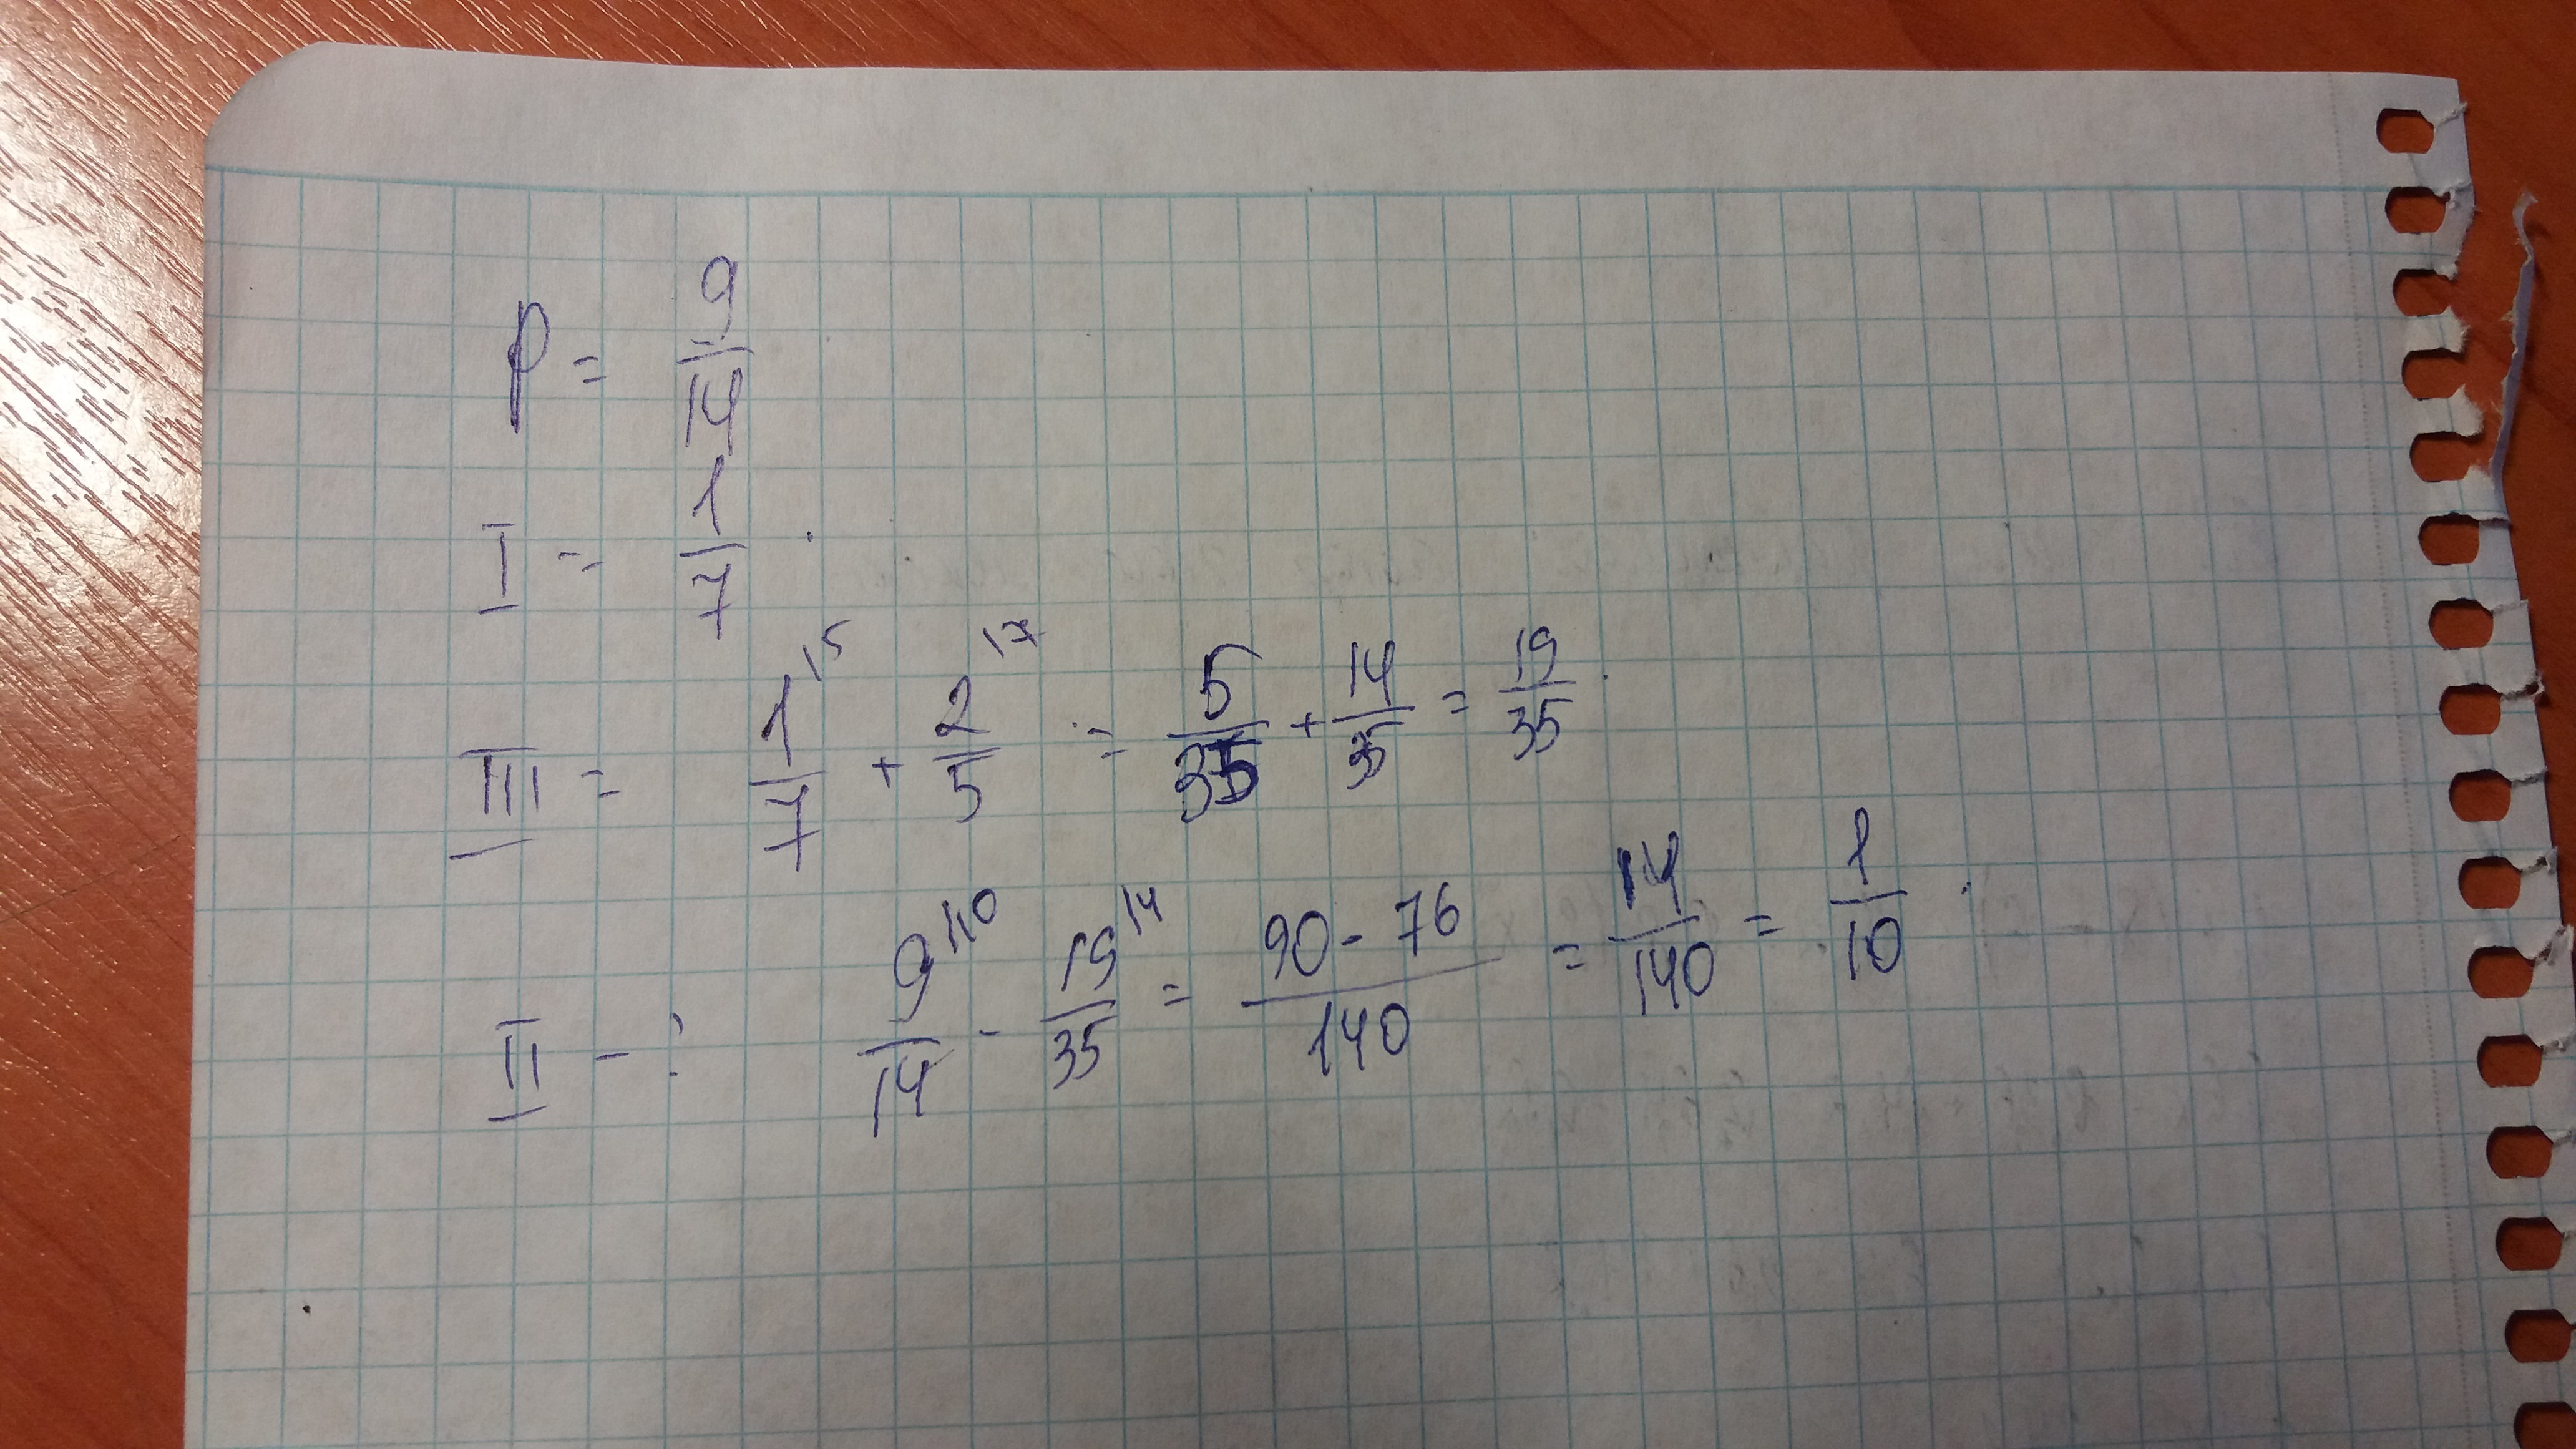 P = 9/14
I = 1/7 .
III = 1/7 \5 + 2/5 \7 = 5/35 + 14/35 = 19/35 .
II - ? 9/14 \10 - 19/35 \4 = 90 - 76/140 = 14/140 = 1/10 .